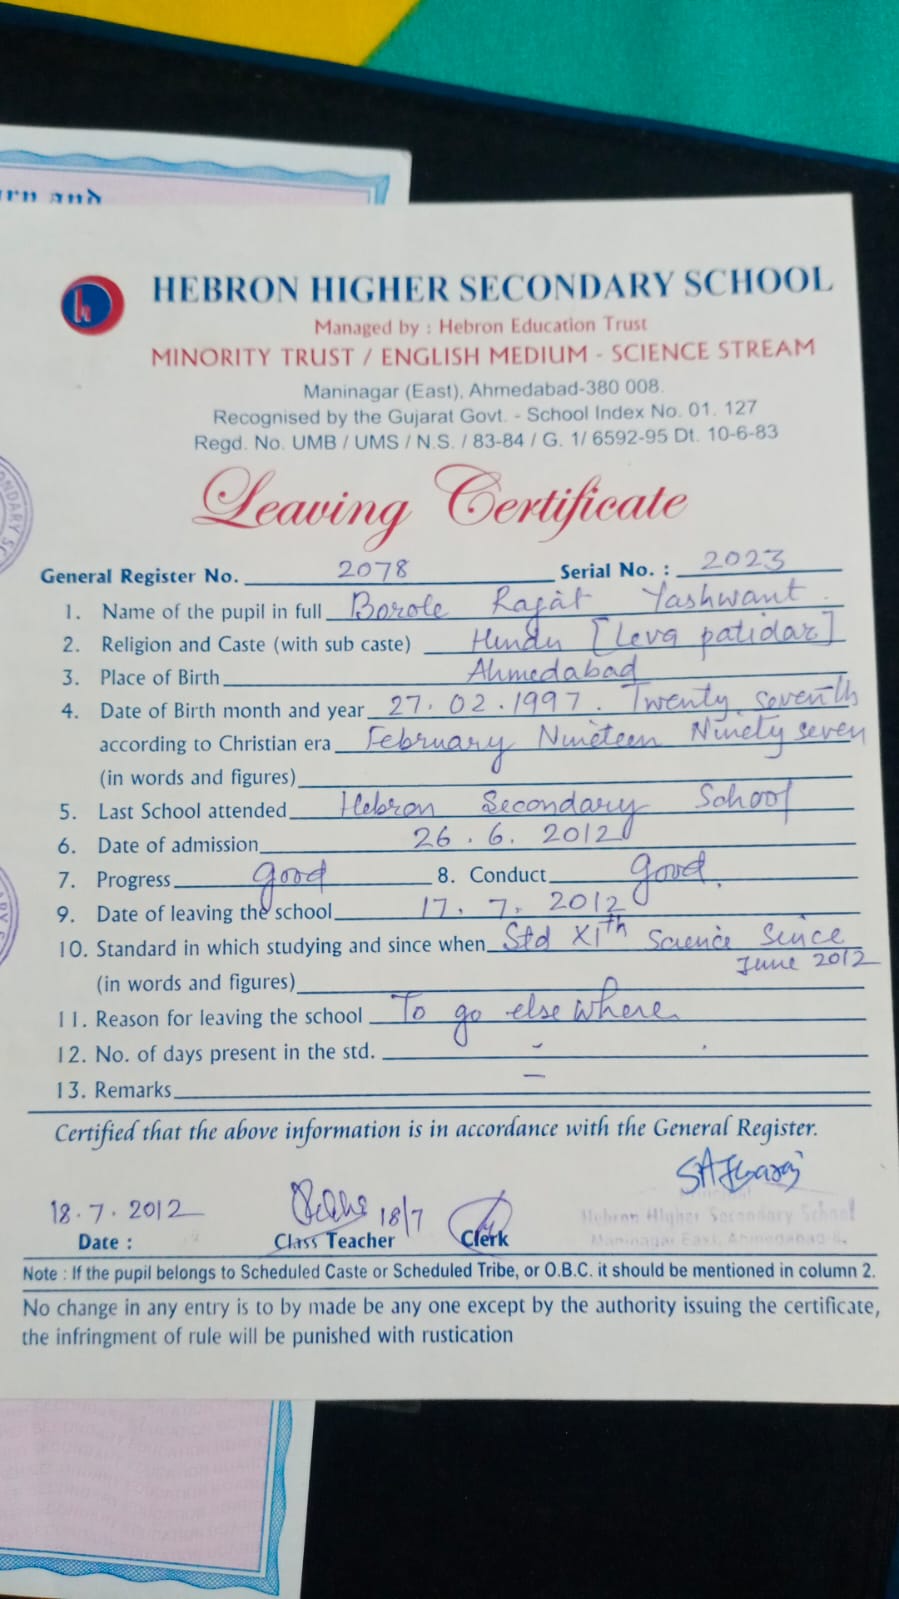 rn and
HEBRON HIGHER SECONDARY SCHOOL
Managed by : Hebron Education Trust
MINORITY TRUST / ENGLISH MEDIUM - SCIENCE STREAM
Maninagar (East), Ahmedabad-380 008.
Recognised by the Gujarat Govt. - School Index No. 01. 127
Regd. No. UMB / UMS / N.S. / 83-84 / G. 1/ 6592-95 Dt. 10-6-83
Leaving Certificate
General Register No. 2078 Serial No. : 2023
1. Name of the pupil in full Borole Rajat Yashwant.
2. Religion and Caste (with sub caste) Hindu [Leva patidar]
3. Place of Birth Ahmedabad
4. Date of Birth month and year 27.02.1997. Twenty seventh
according to Christian era February Nineteen Ninety seven
(in words and figures)
5. Last School attended Hebron Secondary School
6. Date of admission 26.6.2012
7. Progress good 8. Conduct good.
9. Date of leaving the school 17.7.2012
10. Standard in which studying and since when Std XIth Science Since
June 2012
(in words and figures)
11. Reason for leaving the school To go elsewhere.
12. No. of days present in the std. -
13. Remarks —
Certified that the above information is in accordance with the General Register.
18.7.2012 18/7
Hebron Higher Secondary School
Date : Class Teacher Clerk Maninagar East, Ahmedabad-8.
Note : If the pupil belongs to Scheduled Caste or Scheduled Tribe, or O.B.C. it should be mentioned in column 2.
No change in any entry is to by made be any one except by the authority issuing the certificate,
the infringment of rule will be punished with rustication